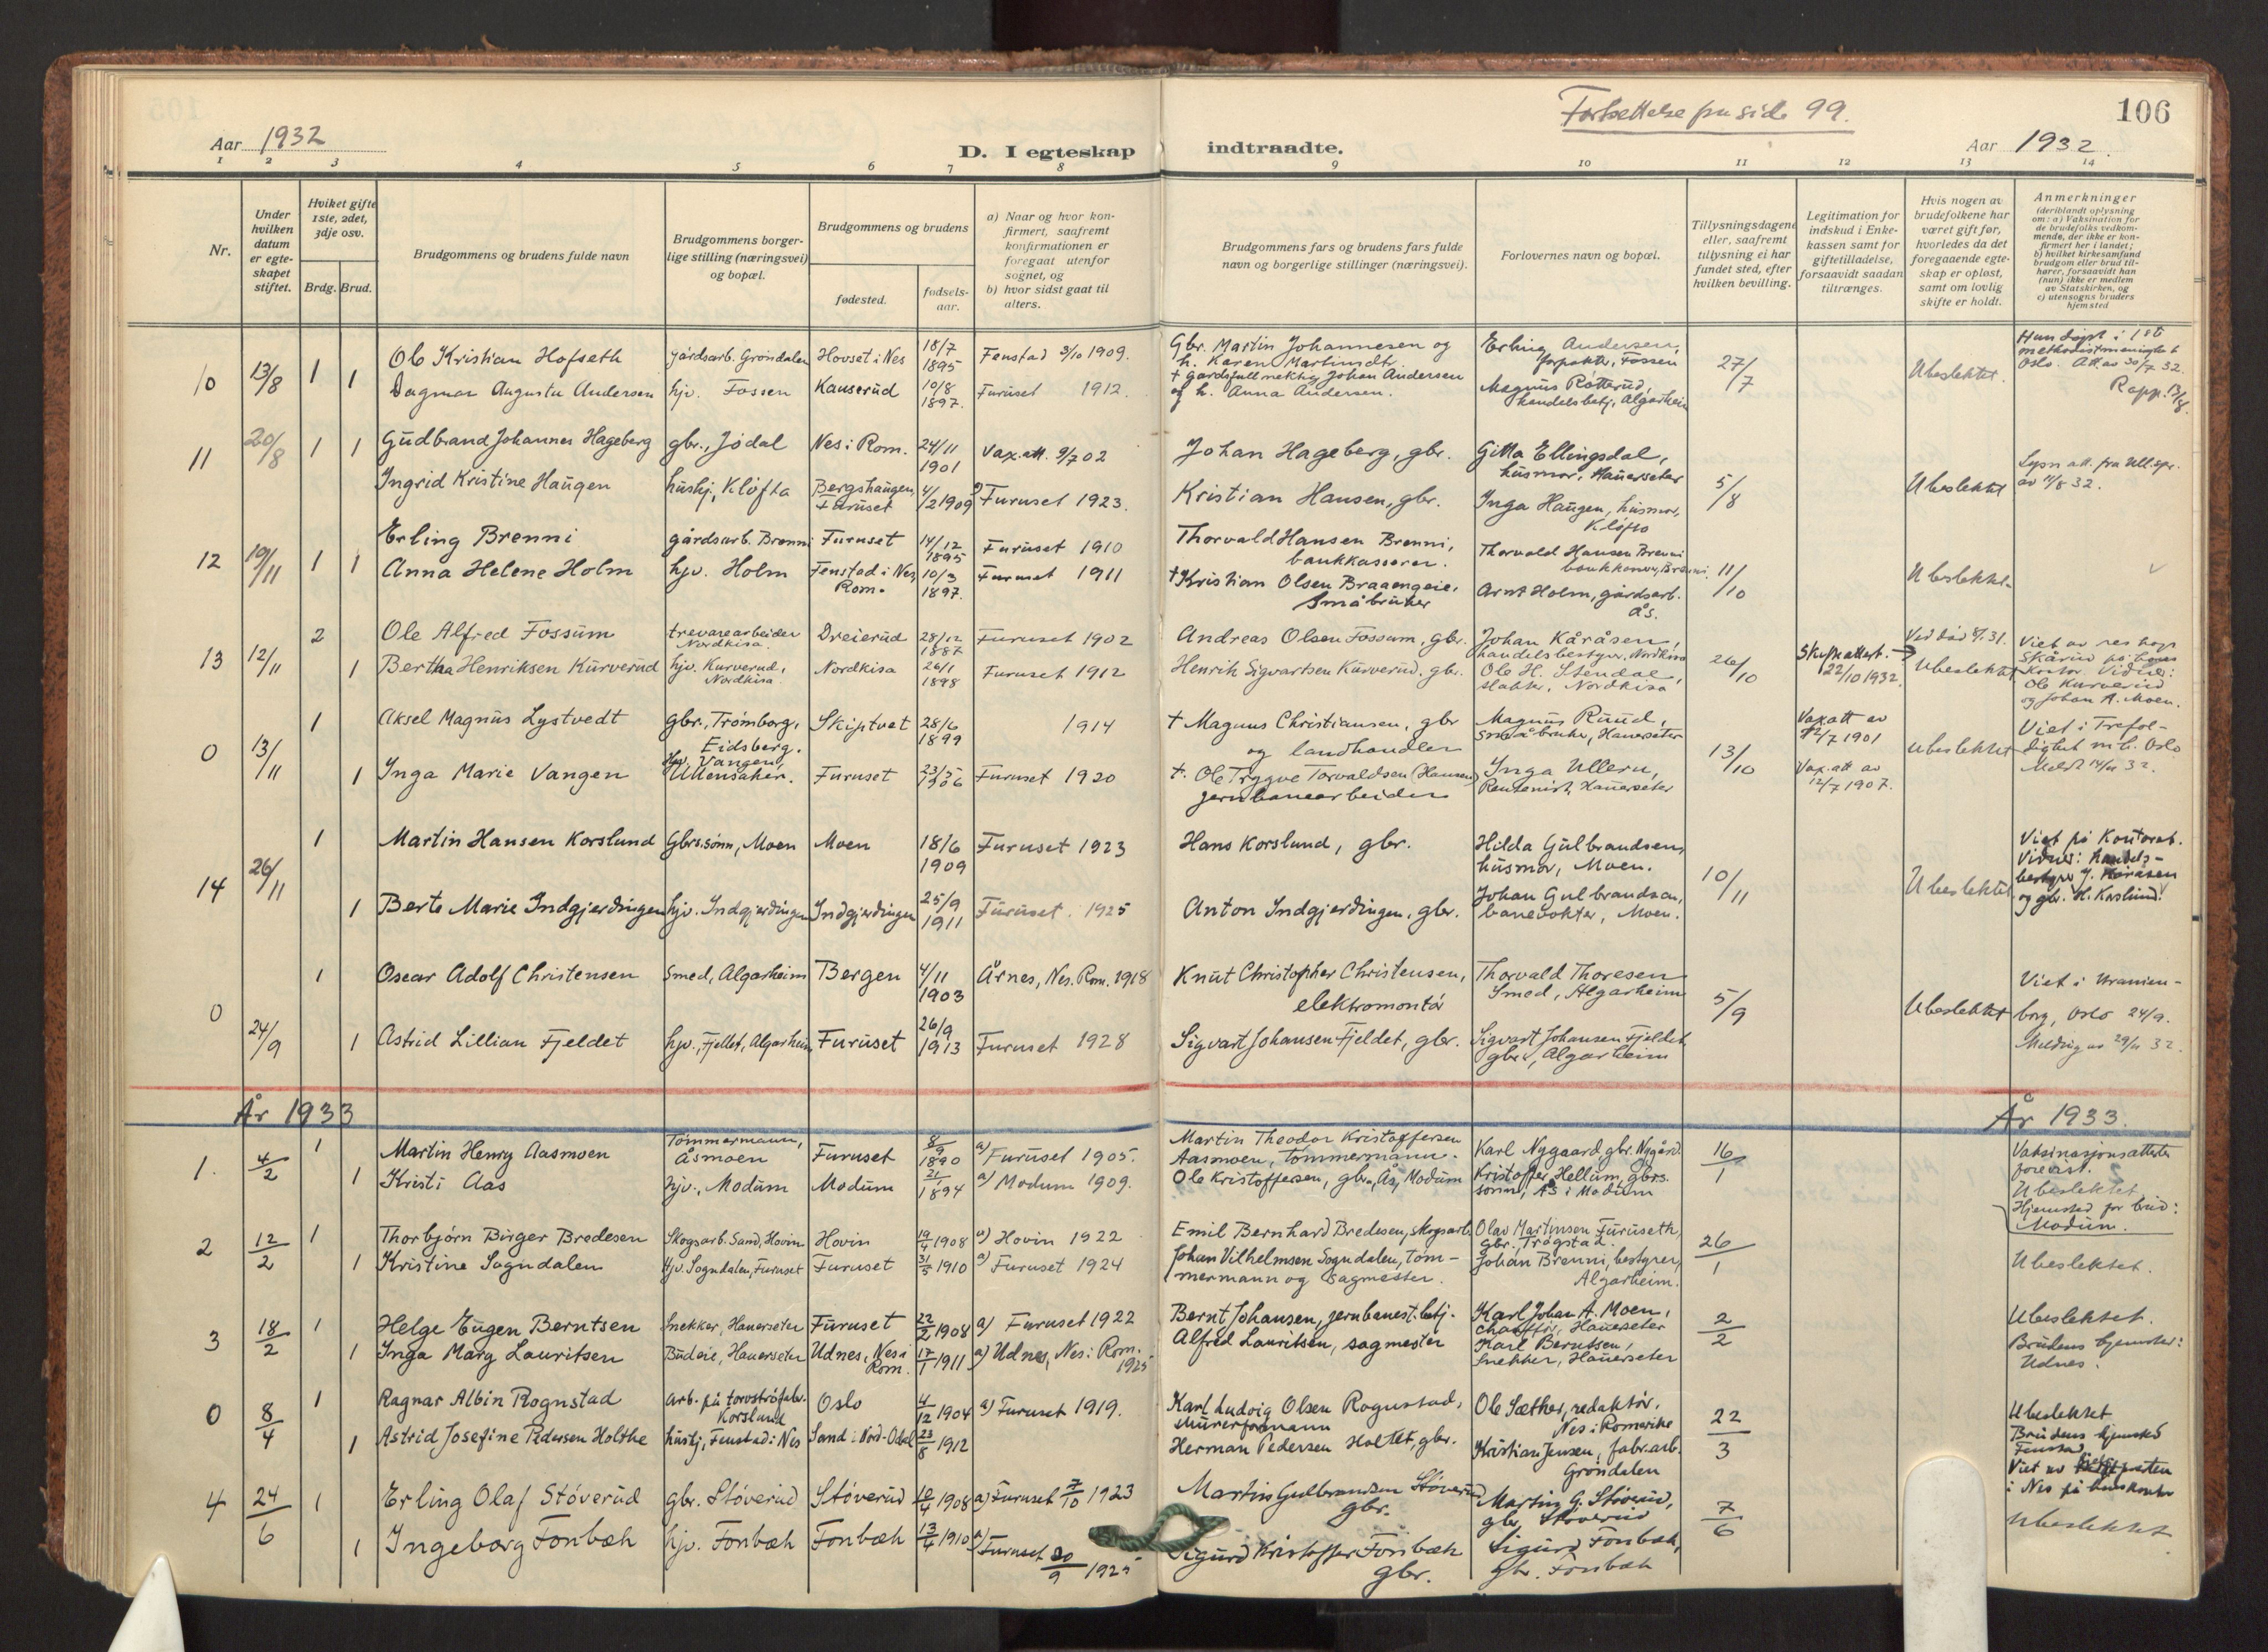 Fortsettelse på side 99.
106
Aar 1932
D. I egteskap indtraadte.
Aar 1932.
1 2 3 4 5 6 7 8 9 10 11 12 13 14
Nr.
Under hvilken datum er egteskapet stiftet.
Hviket gifte 1ste, 2det, 3dje osv.
Brdg. Brud.
Brudgommens og brudens fulde navn
Brudgommens borgerlige stilling (næringsvei) og bopæl.
Brudgommens og brudens
fødested.
fødselsaar.
a) Naar og hvor konfirmert, saafremt konfirmationen er foregaat utenfor sognet, og
b) hvor sidst gaat til alters.
Brudgommens fars og brudens fars fulde navn og borgerlige stillinger (næringsvei).
Forlovernes navn og bopæl.
Tillysningsdagene eller, saafremt tillysning ei har fundet sted, efter hvilken bevilling.
Legitimation for indskud i Enkekassen samt for giftetilladelse, forsaavidt saadan tiltrænges.
Hvis nogen av brudefolkene har været gift før, hvorledes da det foregaaende egteskap er opløst, samt om lovlig skifte er holdt.
Anmerkninger (deriblandt oplysning om: a) Vaksination for de brudefolks vedkommende, der ikke er konfirmert her i landet; b) hvilket kirkesamfund brudgom eller brud tilhører, forsaavidt han (hun) ikke er medlem av Statskirken, og c) utensogns bruders hjemsted
10 13/8 1 Ole Kristian Hofseth gårdsarb. Grøndalen Hovset i Nes 18/7 1895 Fenstad 3/10 1909. Gbr. Martin Johannesen og h. Karen Martinsdtr. Erling Andersen, forpakter, Fossen 27/7 Ubeslektet. Hun døpt i 1ste methodistmenighet Oslo. Att. av 30/7 32. Rapp. 13/8.
1 Dagmar Augusta Andersen hjv. Fossen Kauserud 10/8 1897. Furuset 1912. + gårdsfullmektig Johan Andersen og h. Anna Andersen. Magnus Rotterud, handelsbetj, Algarheim
11 20/8 1 1 Gudbrand Johannes Hageberg gbr., Jødal Nes i Rom. 24/11 1901 Vax.att. 9/7 02 Johan Hageberg, gbr. Gitta Ellingsdal, husmor, Hauerseter 5/8 Ubeslektet Lysn att. fra Ull.spr. av 11/8 32.
Ingrid Kristine Haugen hushj, Kløfta Bergshaugen, Furuset 4/2 1909 Furuset 1923. Kristian Hansen, gbr. Inga Haugen, husmor, Kløfta
12 19/11 1 1 Erling Brenni gårdsarb. Brenni Furuset 14/12 1895 Furuset 1910 Thorvald Hansen Brenni, bankkasserer. Thorvald Hansen Brenni bankkasserer, Brenni. 11/10 Ubeslektet
Anna Helene Holm hjv. Holm Fenstad i Nes, Rom. 10/3 1897. Furuset 1911 + Kristian Olsen Braaengeie, Småbruker Arnt Holm, gårdsarb. Ås.
13 12/11 2 Ole Alfred Fossum trevarearbeider Nordkisa. Dreierud 28/12 1887 Furuset 1902 Andreas Olsen Fossum, gbr. Johan Kåråsen, handelsbestyrer, Nordkisa 26/10 Skifteattest. 22/10 1932. Ubeslektet Viet av res kap Skårud på hans kontor Vidner: Ole Kurverud og Johan A. Moen.
1 Bertha Henriksen Kurverud hjv. Kurverud, Nordkisa 26/1 1898 Furuset 1912 Henrik Sigvartsen Kurverud. gbr. Ole H. Stendal, slakter, Nordkisa
0 13/11 1 Aksel Magnus Lystvedt gbr., Trømborg, Eidsberg. Skiptvet 28/6 1899 1914 + Magnus Christiansen, gbr og landhandler Magnus Ruud, småbruker, Hauerseter 13/10 Vax.att av 12/7 1901 Ubeslektet Viet i Trefoldighet m.h. Oslo Meldt 14/11 32.
1 Inga Marie Vangen hjv. Vangen, Ullensaker. Furuset 23/5 1906 Furuset 1920 +. Ole Trygve Torvaldsen (Hansen) jernbanearbeider Inga Ullern, Rentenist, Hauerseter Vax.att av 12/7 1907.
14 26/11 1 Martin Hansen Korslund Gbrs.sønn, Moen Moen 18/6 1909 Furuset 1923 Hans Korslund, gbr. Hilda Gulbrandsen, husmor, Moen. 10/11 Ubeslektet Viet på Kontoret. Vidner: Handelsbestyrer J. Kåråsen og gbr. H. Korslund.
1 Berte Marie Indgjerdingen hjv. Indgjerdingen Indgjerdingen 25/9 1911 Furuset. 1925 Anton Indgjerdingen, gbr. Johan Gulbrandsen, banevokter, Moen.
0 24/9 1 Oscar Adolf Christensen Smed, Algarheim Bergen 4/11 1903 Årnes, Nes. Rom. 1918 Knut Christopher Christensen, elektromontør Thorvald Thoresen Smed, Algarheim 5/9 Ubeslektet Viet i Uranienborg, Oslo 24/9. Melding av 29/11 32.
1 Astrid Lillian Fjeldet hjv., Fjellet, Algarheim Furuset 26/9 1913 Furuset 1928 Sigvart Johansen Fjeldet, gbr. Sigvart Johansen Fjeldet gbr., Algarheim
År 1933
År 1933.
1. 4/2 1 Martin Henry Aasmoen Tømmermann, Åsmoen Furuset 8/9 1890 a) Furuset 1905. Martin Theodor Kristoffersen Aasmoen, tømmermann. Karl Nygaard gbr. Nygård. 16/1 Vaksinasjonsattester forevist. Ubeslektet Hjemsted for brud: Modum.
1 Kristi Aas hjv., Modum Modum 21/1 1894 a) Modum 1909. Ole Kristoffersen, gbr., Ås, Modum Kristoffer Hellum, gbrs. sønn, Ås i Modum
2 12/2 1 Thorbjørn Birger Bredesen Skogsarb. Sand, Hovin Hovin 19/4 1908 a) Hovin 1922 Emil Bernhard Bredesen, skogsarb. Olav Martinsen Furuseth, gbr., Trøgstad 26/1 Ubeslektet.
1 Kristine Sogndalen Hjv. Sogndalen, Furuset Furuset 31/5 1910 a) Furuset 1924 Johan Vilhelmsen Sogndalen, tømmermann og sagmester. Johan Brenni, bestyrer, Algarheim.
3 18/2 1 Helge Eugen Berntsen Snekker, Hauerseter Furuset 22/2 1908 a) Furuset 1922 Bernt Johansen, jernbanest.betj. Karl Johan A. Moen, chauffør, Hauerseter 2/2 Ubeslektet. Brudens hjemsted: Udnes.
1 Inga Marg Lauritsen Budeie, Hauerseter Udnes, Nes i Rom. 17/1 1911 a) Udnes, Nes i Rom. 1925 Alfred Lauritsen, sagmester Karl Berntsen, Snekker, Hauerseter
0 8/4 1 Ragnar Albin Rognstad arb. på torvstrøfabr. Korslund Oslo 4/12 1904 a) Furuset 1919. Karl Ludvig Olsen Rognstad, Murerformann Ole Sæther, redaktør, Nes i Romerike 22/3 Ubeslektet Brudens hjemsted Fenstad Viet av presten i Nes på hans kontor
1 Astrid Josefine Pedersen Holthe hushj, Fenstad i Nes Sand i Nord-Odal 23/8 1912 Herman Pedersen Holtet, gbr. Kristian Jensen, fabr.arb. Grøndalen
4 24/6 1 Erling Olaf Støverud gbr. Støverud Støverud 10/4 1908 a) Furuset 7/10 1923 Martin Gulbrandsen Støverud gbr. Martin G. Støverud, gbr, Støverud 7/6 Ubeslektet
1 Ingeborg Fonbæk hjv. Fonbæk Fonbæk 13/4 1910 a) Furuset 20/9 1925 Sigurd Kristoffer Fonbæk gbr. Sigurd Fonbæk, gbr. Fonbæk